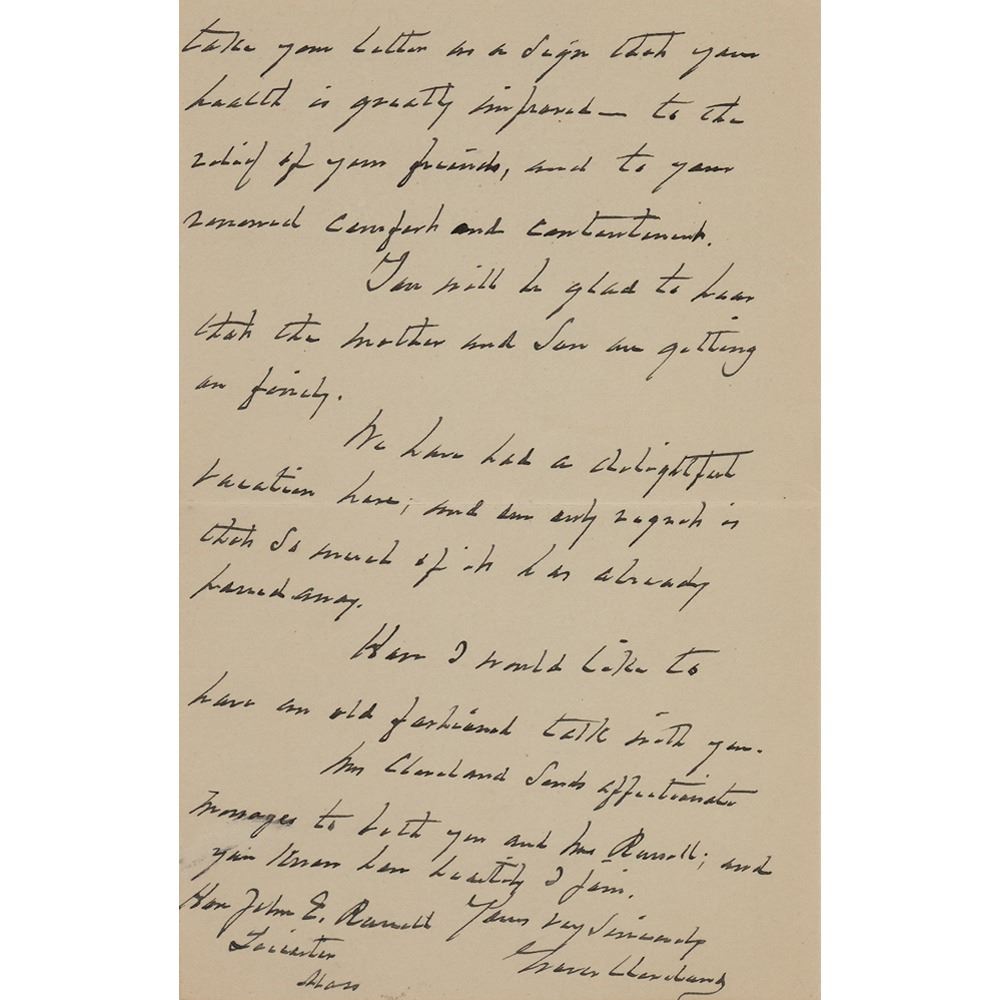 take your letter as a sign that your
health is greatly improved — to the
relief of your friends, and to your
renewed comfort and contentment.
You will be glad to hear
that the mother and Son are getting
on finely.
We have had a delightful
vacation here; and our only regret is
that so much of it has already
passed away.
How I would like to
have an old fashioned talk with you.
Mrs Cleveland sends affectionate
messages to both you and Mrs Russell; and
you know how heartily I join.
Yours very sincerely
Grover Cleveland
Hon John E. Russell
Leicester
Mass